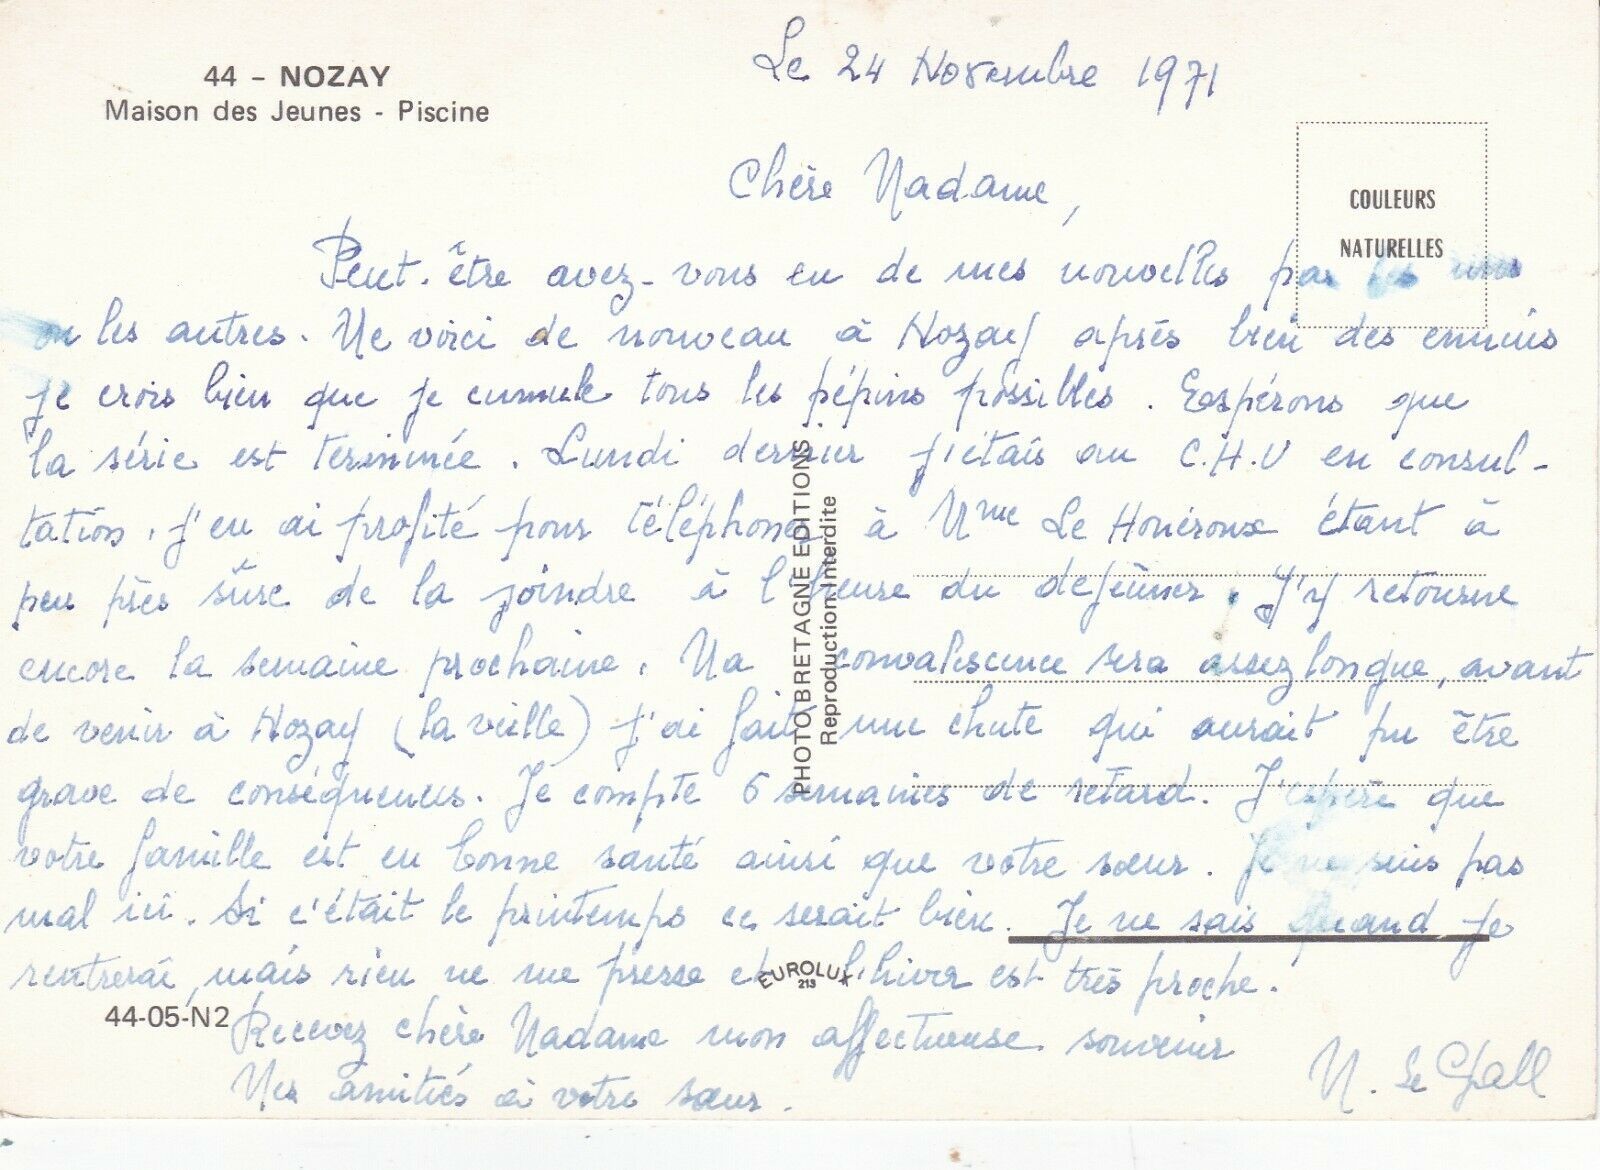 44 - NOZAY
Maison des Jeunes - Piscine
Le 24 Novembre 1971
COULEURS
NATURELLES
Chère Madame,
Peut-être avez-vous eu de mes nouvelles par les uns
ou les autres. Me voici de nouveau à Nozay après bien des ennuis
je crois bien que je cumule tous les pépins possibles. Espérons que
la série est terminée. Lundi dernier j'étais au C.H.U en consul-
tation. j'en ai profité pour téléphoner à Mme Le Houéroux étant à
peu près sûre de la joindre à l'heure du déjeûner. J'y retourne
encore la semaine prochaine. Ma convalescence sera assez longue, avant
de venir à Nozay (la veille) j'ai fait une chute qui aurait pu être
grave de conséquences. Je compte 6 semaines de retard. J'espère que
votre famille est en bonne santé ainsi que votre sœur. Je ne suis pas
mal ici. Si c'était le printemps ce serait bien. Je ne sais quand je
rentrerai, mais rien ne me presse et l'hiver est très proche.
Recevez chère Madame mon affectueuse souvenir
Mes amitiés à votre sœur.
M. Le
PHOTO BRETAGNE EDITIONS
Reproduction Interdite
EUROLUX
213
44-05-N2